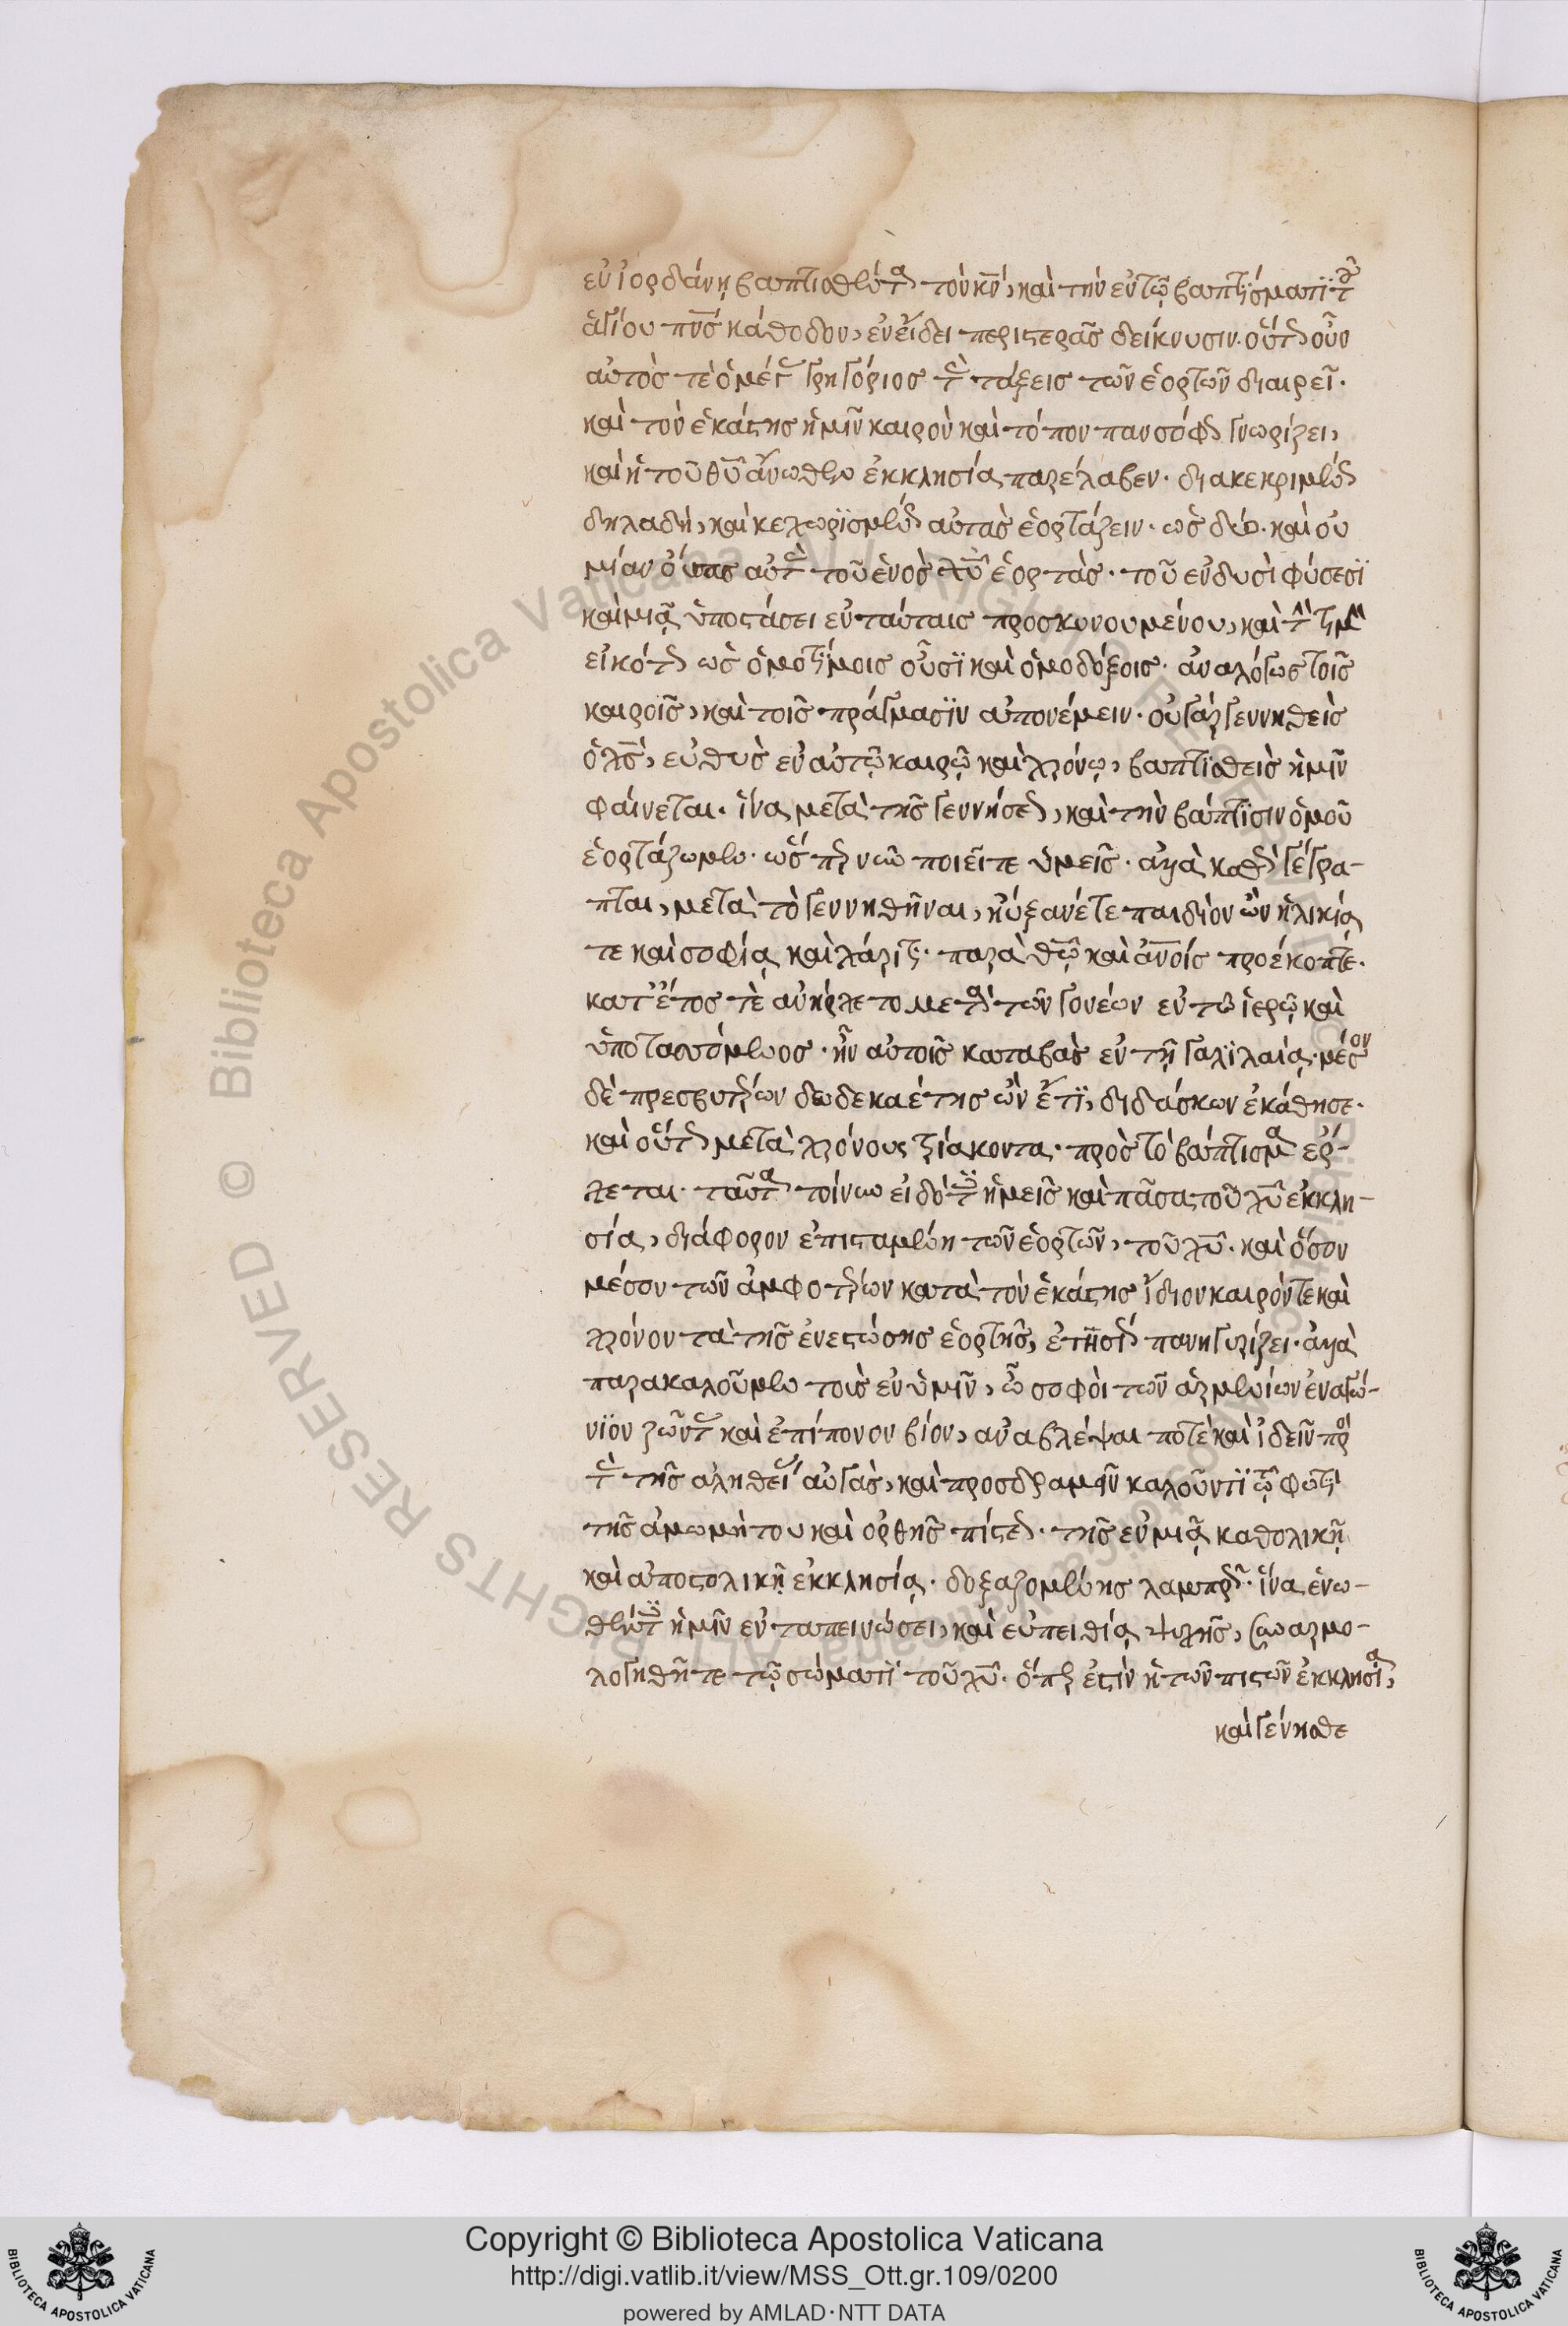 ἐν ἰορδάνῃ βαπτισθέντα τὸν κν, καὶ τὴν ἐν τῷ βαπτίσματι τοῦ
ἁγίου πνς κάθοδον, ἐν εἴδει περιστερᾶς δείκνυσιν. οὕτως οὖν
αὐτὸς τὲ ὁ μέγας γρηγόριος τὰς τάξεις τῶν ἑορτῶν διαιρεῖ.
καὶ τὸν ἑκάστης ἡμῖν καιρὸν καὶ τόπον πανσόφως γνωρίζει,
καὶ ἡ τοῦ θυ ἄνωθεν ἐκκλησία παρέλαβεν. διακεκριμένως
δηλαδὴ, καὶ κεχωρισμένως αὐτὰς ἑορτάζειν. ὡς δύο. καὶ οὐ
μίαν οὔσας αὐτὰς τοῦ ἑνὸς χυ ἑορτάς. τοῦ ἐν δυσὶ φύσεσι
καὶ μιᾷ ὑποστάσει ἐν ταύταις προσκυνουμένου, καὶ τὴν τιμὴν
εἰκότως ὡς ὁμοτίμοις οὖσι καὶ ὁμοδόξοις. ἀναλόγως τοῖς
καιροῖς, καὶ τοῖς πράγμασιν ἀπονέμειν. οὐ γὰρ γεννηθεὶς
ὁ χς, εὐθὺς ἐν αὐτῷ καιρῷ καὶ χρόνῳ, βαπτισθεὶς ἡμῖν
φαίνεται. ἵνα μετὰ τῆς γεννήσεως, καὶ τὴν βάπτισιν ὁμοῦ
ἑορτάζωμεν. ὥσπερ νῦν ποιεῖτε ὑμεῖς. ἀλλὰ καθὼς γέγρα-
πται, μετὰ τὸ γεννηθῆναι, ηὔξανέ τε παιδίον ὢν ἡλικίᾳ
τε καὶ σοφίᾳ καὶ χάριτι. παρὰ θω καὶ ἀνοις προέκοπτε.
κατ' ἔτος τὲ ἀνήρχετο μετὰ τῶν γονέων ἐν τῷ ἱερῷ καὶ
ὑποτασσόμενος. ἦν αὐτοῖς καταβὰς ἐν τῇ γαλιλαίᾳ. μέσον
δὲ πρεσβυτέρων δωδεκαέτης ὢν ἔτι, διδάσκων ἐκάθησε.
καὶ οὕτως μετὰ χρόνους τριάκοντα. πρὸς τὸ βάπτισμα ἔρ-
χεται. ταῦτα τοίνυν εἰδότες ἡμεῖς καὶ πᾶσα τοῦ χυ ἐκκλη-
σία, διάφορον ἐπισταμένη τῶν ἑορτῶν, τοῦ χυ. καὶ ὅσον
μέσον τῶν ἀμφοτέρων κατὰ τὸν ἑκάστης ἴδιον καιρόν τε καὶ
χρόνον τὰ τῆς ἐνεστώσης ἑορτῆς, ἐτησίως πανηγυρίζει. ἀλλὰ
παρακαλοῦμεν τοὺς ἐν ὑμῖν, ὦ σοφοὶ τῶν ἀρμενίων ἐναγώ-
νιον ζῶντας καὶ ἐπίπονον βίον, ἀναβλέψαι ποτὲ καὶ ἰδεῖν πρὸς
τὰς τῆς ἀληθείας αὐγὰς, καὶ προσδραμεῖν καλοῦντι τῷ φωτὶ
τῆς ἀμωμήτου καὶ ὀρθῆς πίστεως. τῆς ἐν μιᾷ καθολικῇ
καὶ ἀποστολικῇ ἐκκλησίᾳ. δοξαζομένης λαμπρῶς. ἵνα ἑνω-
θέντες ἡμῖν ἐν ταπεινώσει, καὶ εὐπειθίᾳ ψυχῆς, συναρμο-
λογηθῆτε τῷ σώματι τοῦ χυ. ὅπερ ἐστὶν ἡ τῶν πιστῶν ἐκκλησία,
καὶ γένησθε
© Biblioteca Apostolica Vaticana ALL RIGHTS RESERVED
Copyright © Biblioteca Apostolica Vaticana
http://digi.vatlib.it/view/MSS_Ott.gr.109/0200
powered by AMLAD·NTT DATA
BIBLIOTECA APOSTOLICA VATICANA
BIBLIOTECA APOSTOLICA VATICANA